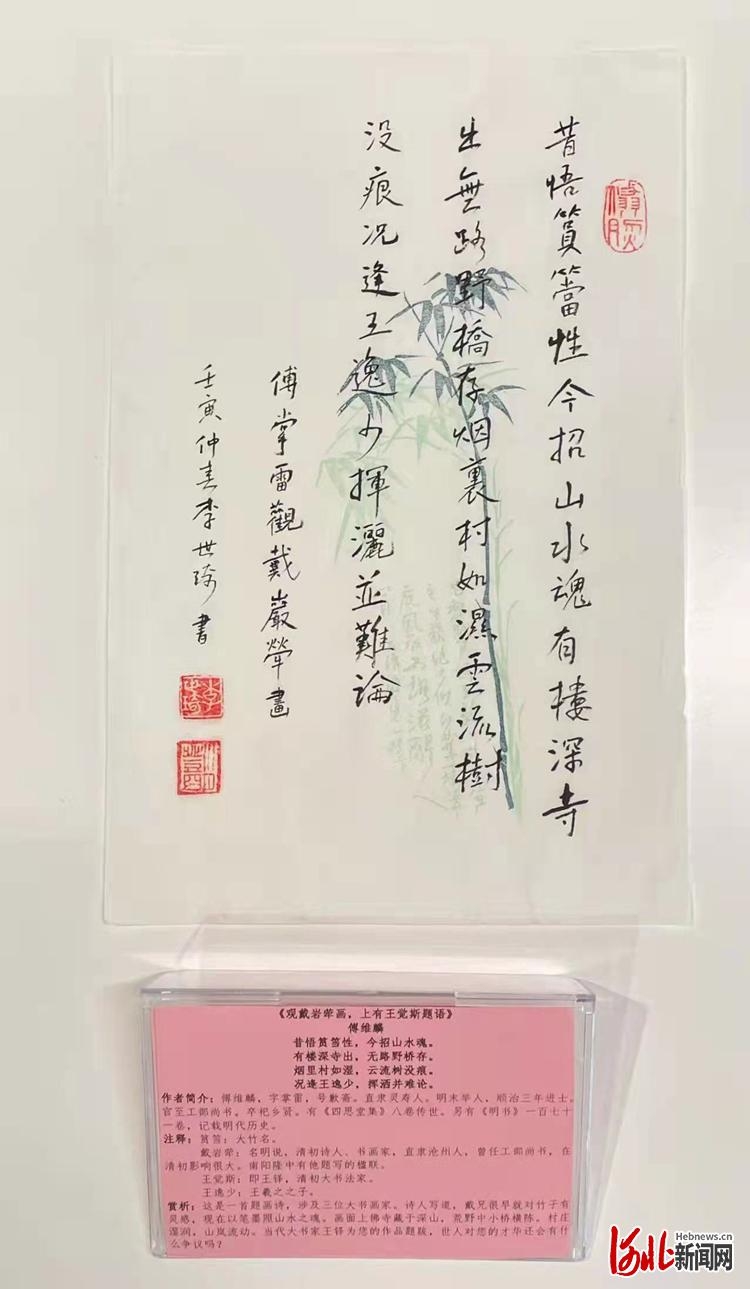 昔悟篔簹性今招山水魂有楼深寺
出無路野橋存烟裏村如濕雲流樹
没痕况逢王逸少揮灑並難論
傅掌雷觀戴巖犖畫
壬寅仲春李世琦書
《观戴岩荦画，上有王觉斯题语》
傅维麟
昔悟筼筜性，今招山水魂。
有楼深寺出，无路野桥存。
烟里村如湿，云流树没痕。
况逢王逸少，挥洒并难论。
作者简介：傅维麟，字掌雷，号歉斋。直隶灵寿人。明末举人，顺治三年进士。
官至工部尚书。卒祀乡贤。有《四思堂集》八卷传世。另有《明书》一百七十
一卷，记载明代历史。
注释：筼筜：大竹名。
戴岩荦：名明说，清初诗人、书画家，直隶沧州人，曾任工部尚书，在
清初影响很大。南阳隆中有他题写的楹联。
王觉斯：即王铎，清初大书法家。
王逸少：王羲之之子。
赏析：这是一首题画诗，涉及三位大书画家。诗人写道，戴兄很早就对竹子有
灵感，现在以笔墨照山水之魂。画面上佛寺藏于深山，荒野中小桥横陈。村庄
湿润，山岚流动。当代大书家王铎为您的作品题跋，世人对您的才华还会有什
么争议吗？
Hebnews.cn
河北新闻网